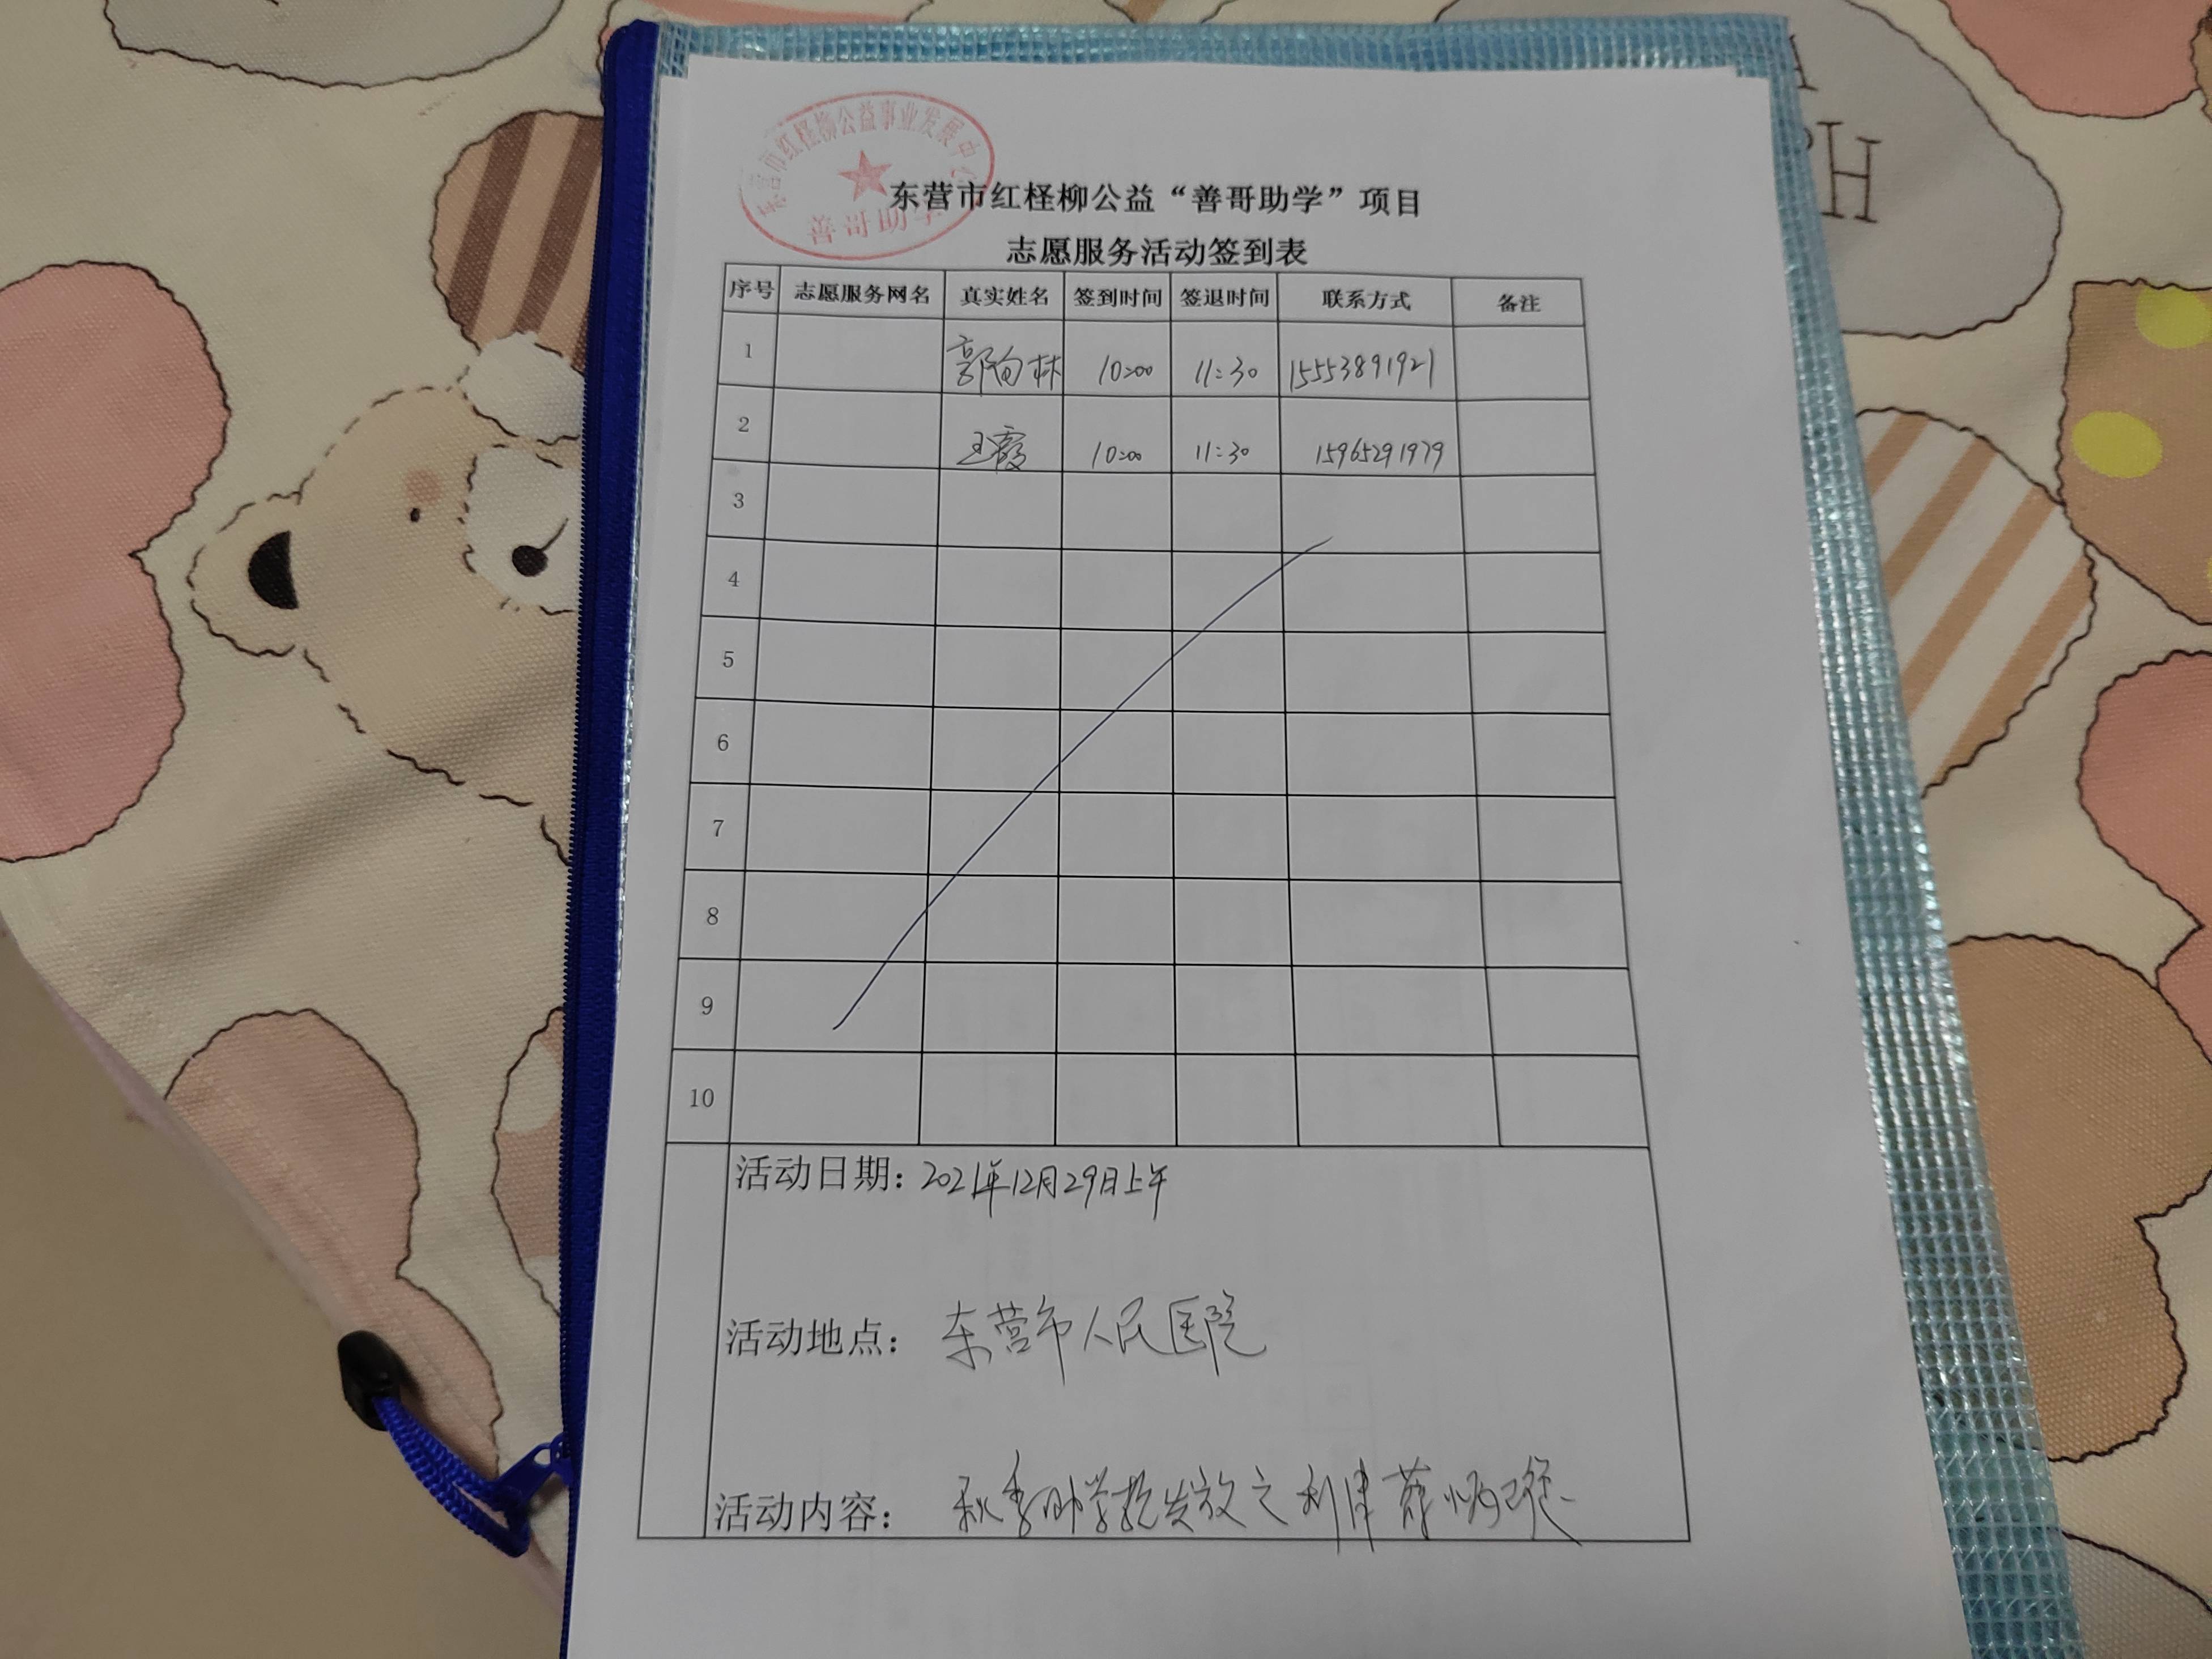 东营市红柽柳公益事业发展中心
善哥助学
东营市红柽柳公益“善哥助学”项目
志愿服务活动签到表
序号 志愿服务网名 真实姓名 签到时间 签退时间 联系方式 备注
1 郭向林 10:00 11:30 15553891921
2 王霞 10:00 11:30 15965291979
3
4
5
6
7
8
9
10
活动日期：2021年12月29日上午
活动地点：东营市人民医院
活动内容：秋季助学款发放之利津
PH